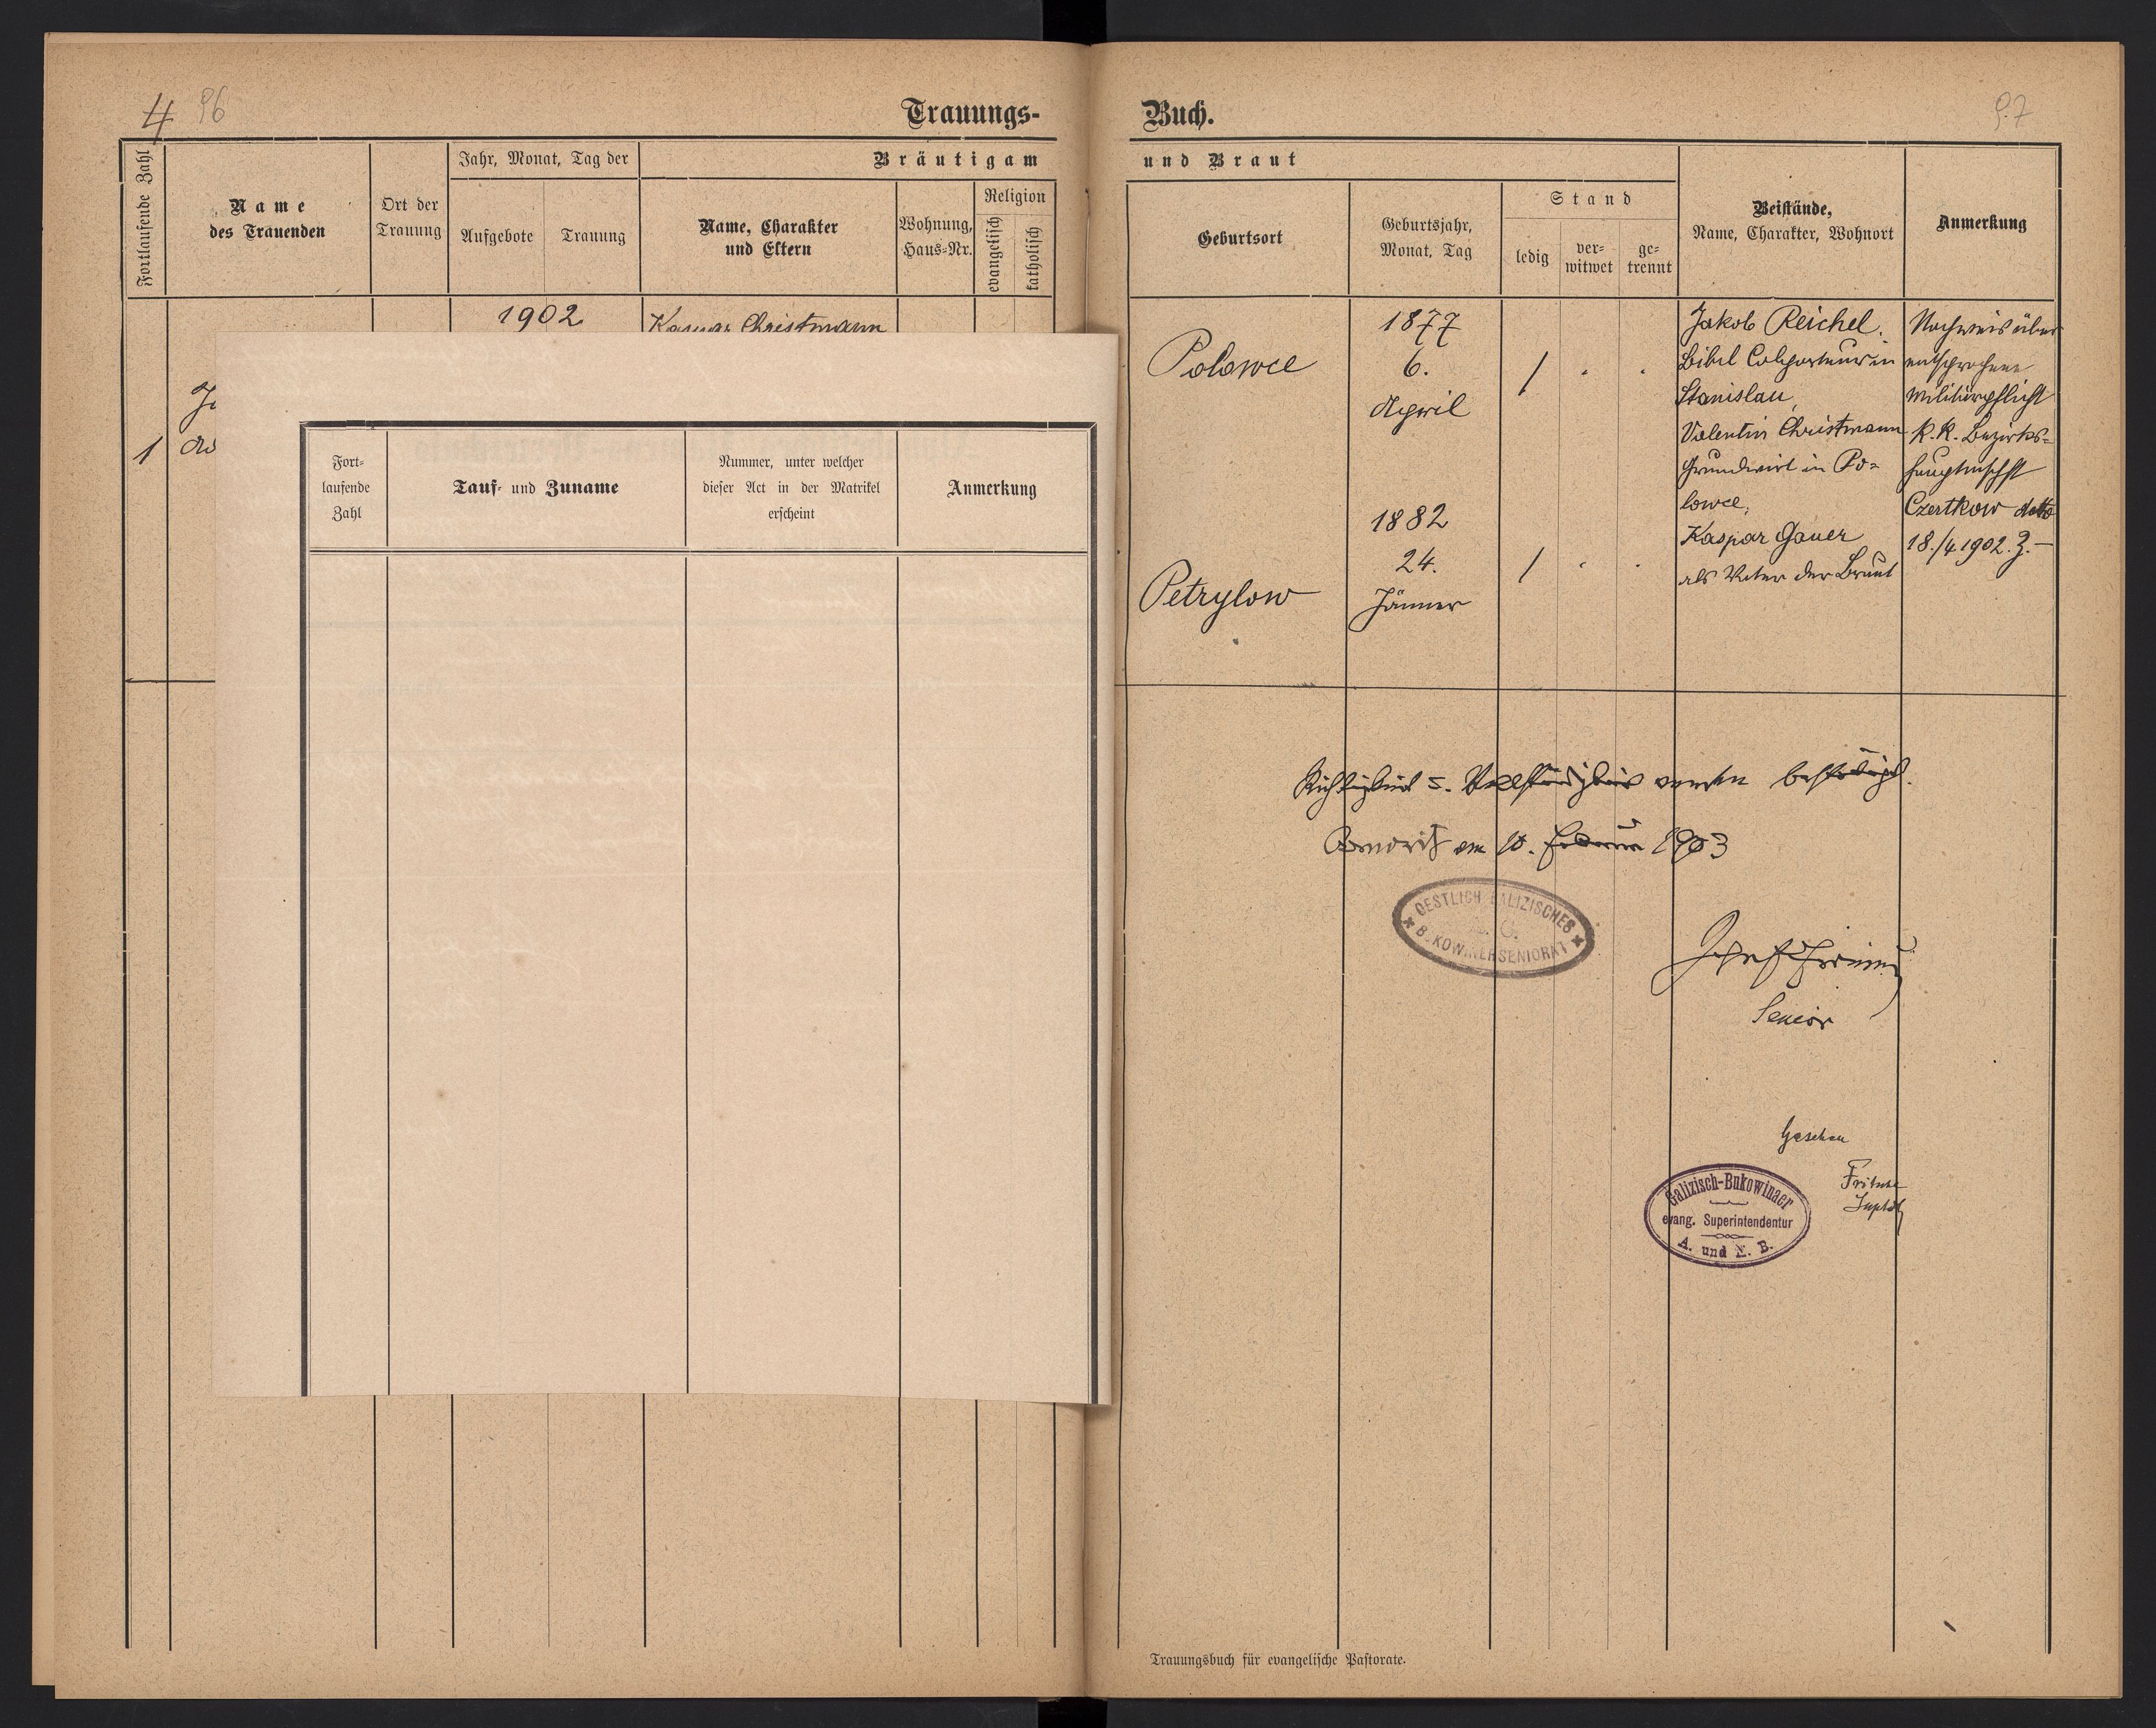 4 96
Trauungs-
Fortlaufende Zahl
Name
des Trauenden
Ort der
Trauung
Jahr, Monat, Tag der
Aufgebote
Trauung
Bräutigam
Name, Charakter
und Eltern
Wohnung,
Haus-Nr.
Religion
evangelisch
katholisch
1902
Kaspar Christmann
1
Fort-
laufende
Zahl
Tauf- und Zuname
Nummer, unter welcher
dieser Act in der Matrikel
erscheint
Anmerkung
Buch.
97
und Braut
Geburtsort
Geburtsjahr,
Monat, Tag
Stand
ledig
ver-
witwet
ge-
trennt
Beistände,
Name, Charakter, Wohnort
Anmerkung
Polowce
1877
6.
April
/
Petrylow
1882
24.
Jänner
/
Jakob Reichel.
Bibel Colporteur in
Stanislau,
Valentin Christmann
Grundwirt in Po=
lowce,
Kaspar Gauer
als Vater der Braut
Nachweis über
entsprochene
Militärpflicht
K. K. Bezirks=
hauptmschft
Czertkow dtto
18./4 1902. Z.—
Richtigkeit u. Vollständigkeit werden bestätigt.
am 10. Februar 1903
OESTLICH GALIZISCHES
BUKOWINER SENIORAT
Senior
Gesehen
Fritsche
Suptdt
Galizisch-Bukowinaer
evang. Superintendentur
A. und H. B.
Trauungsbuch für evangelische Pastorate.